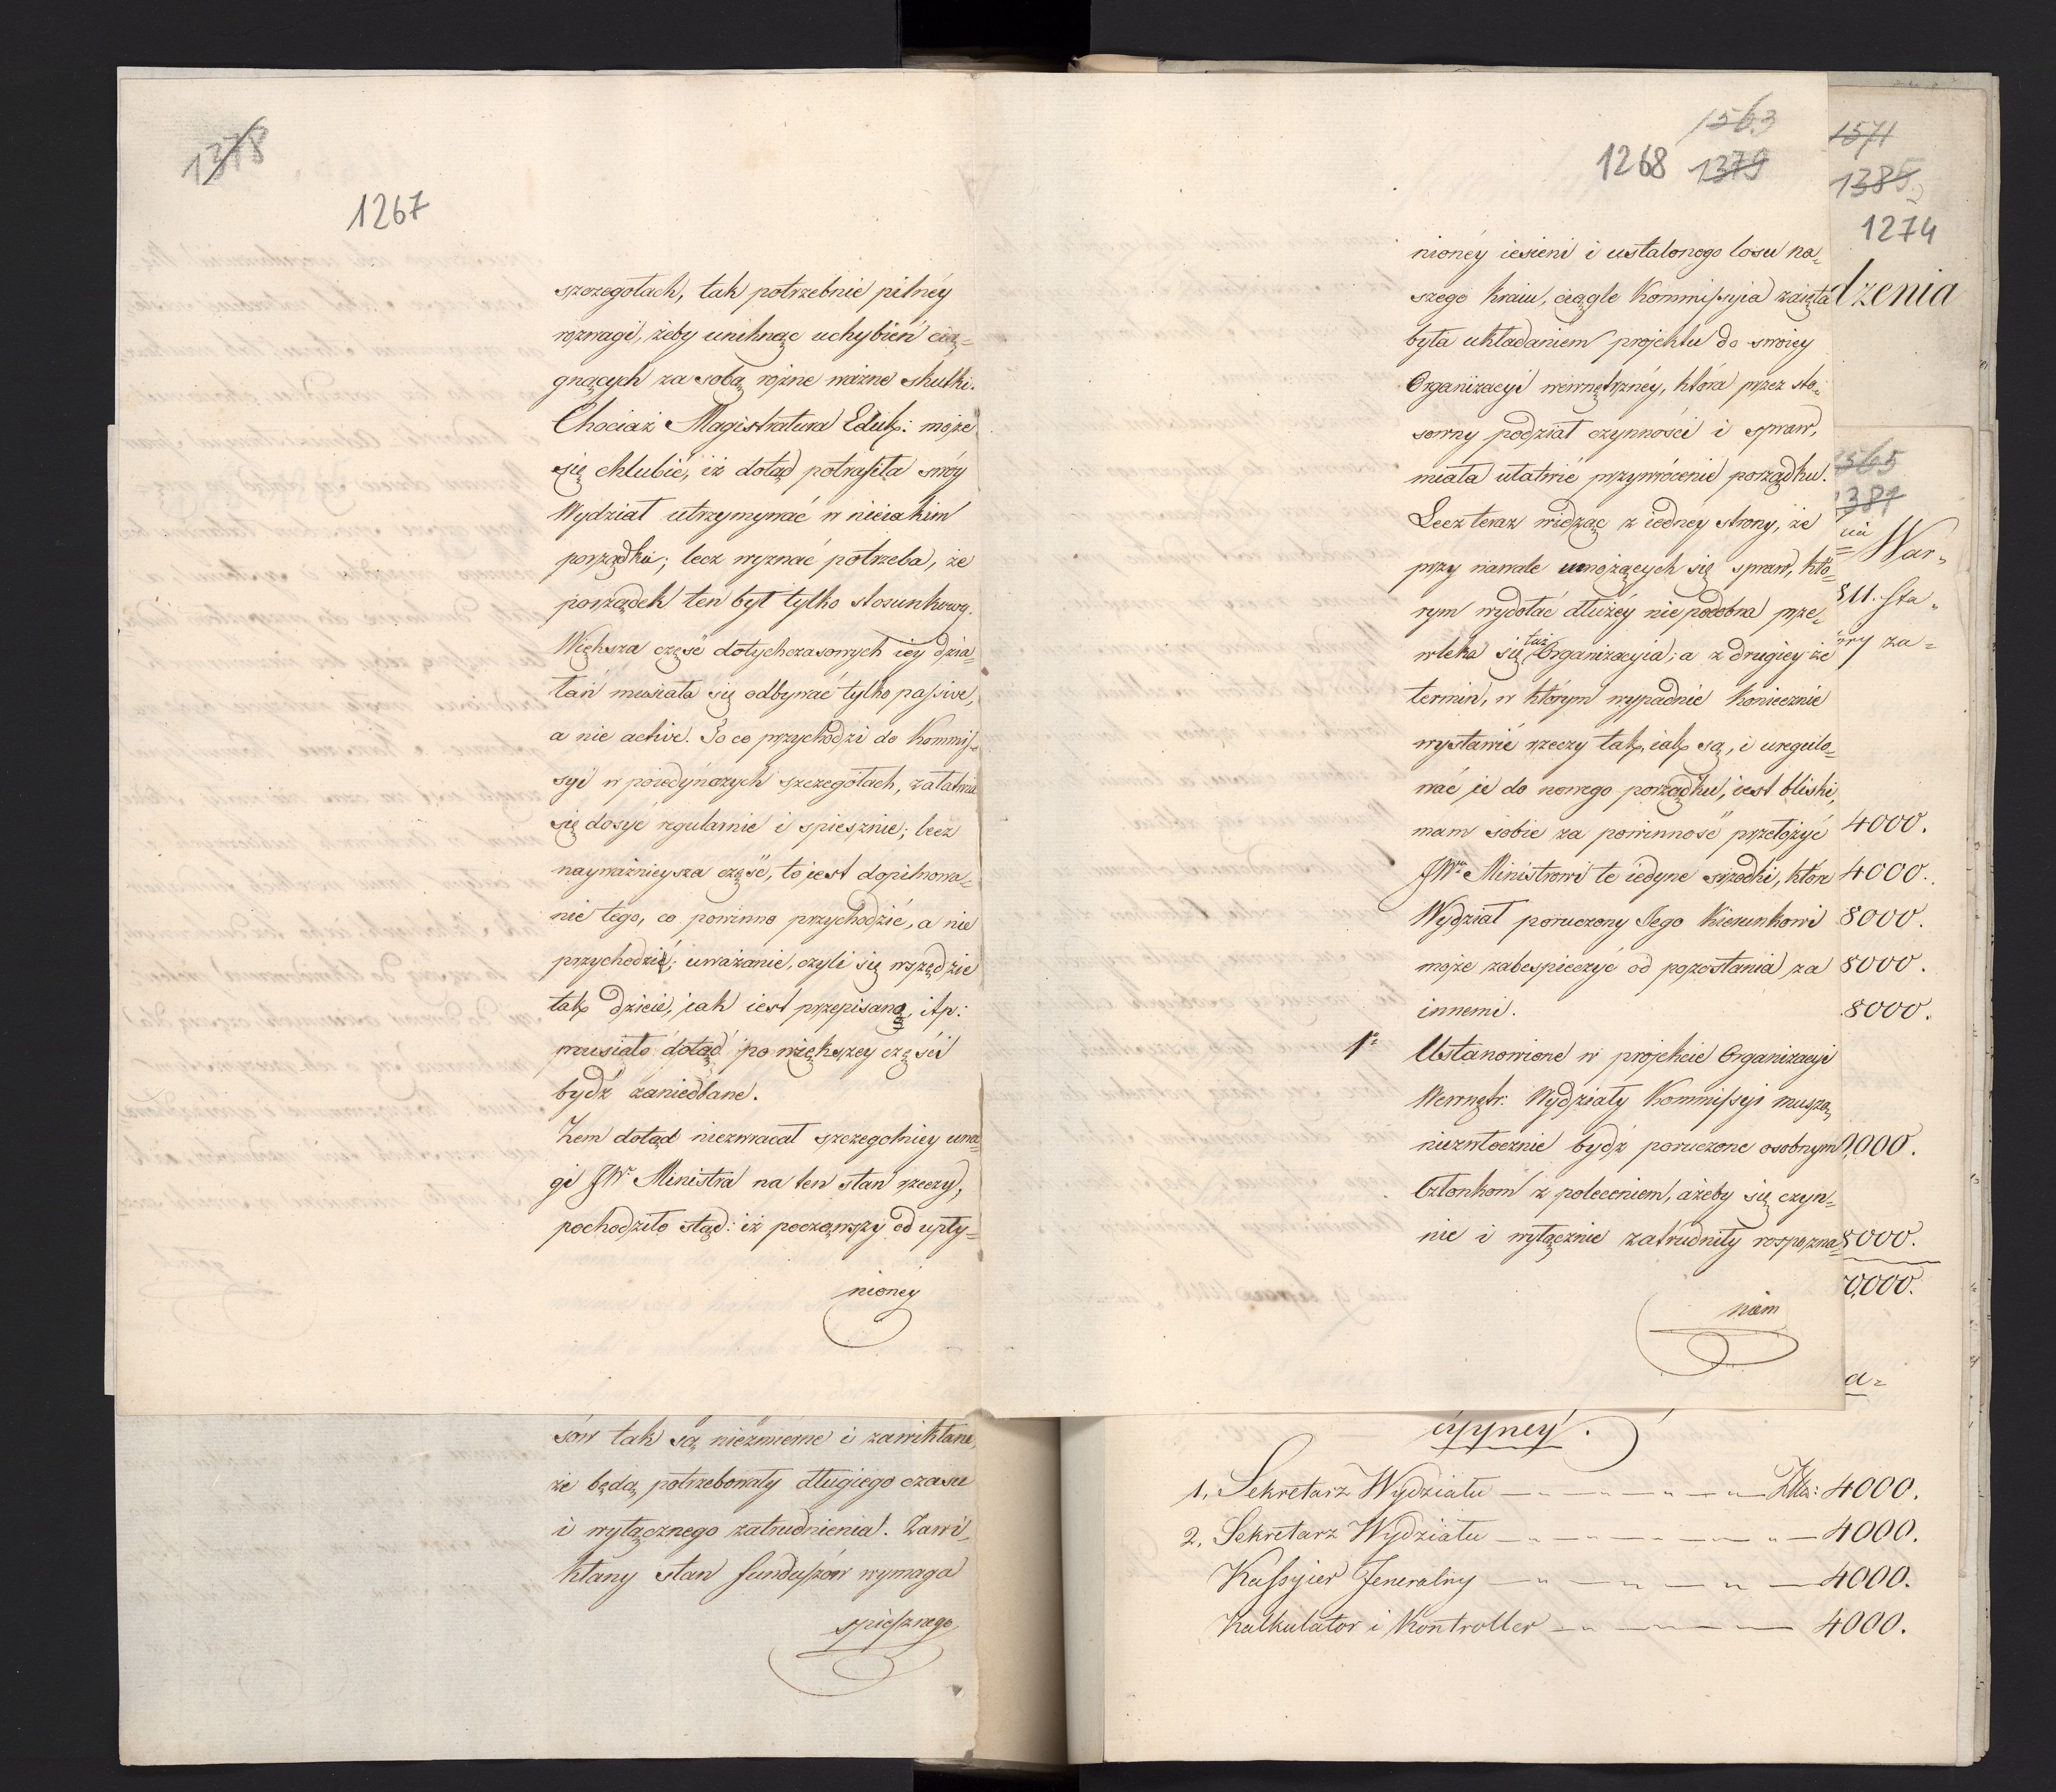 1378
1267
szczegołach, tak potrzebnie pilnéy
rozwagi, żeby uniknąc uchybień cią=
gnących za sobą rożne ważne skutki.
Chociaż Magistratura Eduk: może
się chlubić, iż dotąd potrafiła swóy
Wydział utrzymywać w nieiakim
porządku; lecz wyznać potrzeba, że
porządek ten był tylko stosunkowy.
Większa część dotychczasowych iey dzia=
łań musiała się odbywać tylko passive,
a nie active. To co przychodzi do Kommis=
syi w poiedyńczych szczegołach, załatwia
się dosyć regularnie i spiesznie; lecz
nayważnieysza część, to iest dopilnowa=
nie tego, co powinno przychodzić, a nie
przychodzi; uważanie, czyli się wszędzie
tak dzieie, iak iest przepisano, itp:
musiało dotąd po większey części
bydź zaniedbane.
Żem dotąd niezwracał szczegolniey uwa
gi JWo Ministra na ten stan rzeczy,
pochodziło stąd: iż począwszy od upły=
nioney
sów tak są niezmierne i zawikłane,
że będą potrzebowały długiego czasu
i wyłącznego zatrudnienia. Zawi=
kłany stan funduszów wymaga
spiesznego
1563
1268 1379
nionéy iesieni i ustalonego losu na=
szego kraiu, ciągle Kommissyia zaięta
była układaniem projektu do swoiey
Organizacyi wewnętrznéy, która przez sto=
sowny podział czynności i spraw,
miała ułatwić przywrócenie porządku.
Lecz teraz widząc z iednéy strony, że
przy nawale umnożących się spraw, któ=
rym wydołać dłużéy niepodobna prze=
wleka się taż Organizacyia; a z drugiey że
termin, w którym wypadnie koniecznie
wystawić rzeczy tak, iak są, i uregulo=
wać ie do nowego porządku, iest bliski,
mam sobie za powinność przełożyć
JWu Ministrowi te iedyne srzodki, które
Wydział poruczony Jego Kierunkowi
może zabespieczyć od pozostania za
innemi.
1o Ustanowione w projekcie Organizacyi
Wewnętr: Wydziały Kommissyi muszą
niezwłocznie bydź poruczone osobnym
Członkom z poleceniem, ażeby się czyn=
nie i wyłącznie zatrudniły rospozna=
niem
1571
1385
1274
dzenia
1565
1387
nia
War=
811. Sta=
óry za=
4000.
4000.
8000.
8000.
8000.
0,000.
8000.
0,000.
a=
cyyney.
1. Sekretarz Wydziału — Złt: 4000.
2. Sekretarz Wydziału — 4000.
Kassyier Jeneralny — 4000.
Kalkulator i Kontroller — 4000.